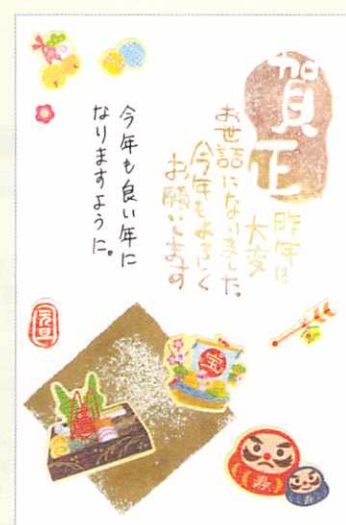 賀正
昨年は
大変
お世話になりました。
今年もよろしく
お願いします
今年も良い年に
なりますように。
元旦
宝
寿